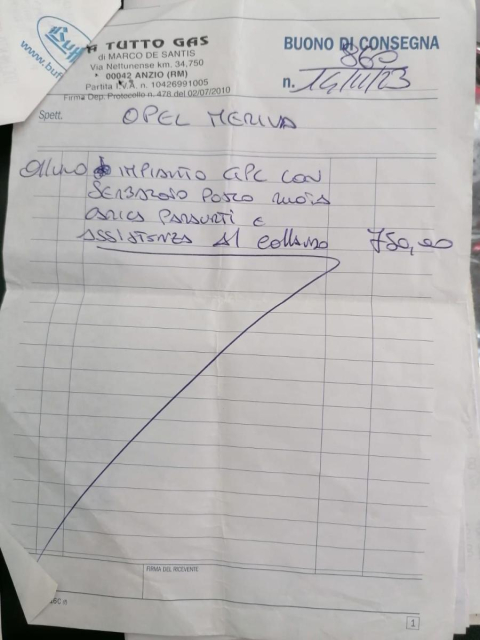 Buff
www.buf
A TUTTO GAS
di MARCO DE SANTIS
Via Nettunense km. 34,750
00042 ANZIO (RM)
Partita I.V.A. n. 10426991005
Firma Dep. Protocollo n. 478 del 02/07/2010
BUONO DI CONSEGNA
860
n. 14/11/23
Spett.
OPEL MERIVA
IMPIANTO GPL CON
SERBATOIO POSTO RUOTA
CARICA PARAURTI E
ASSISTENZA AL COLLAUDO 750,00
FIRMA DEL RICEVENTE
1